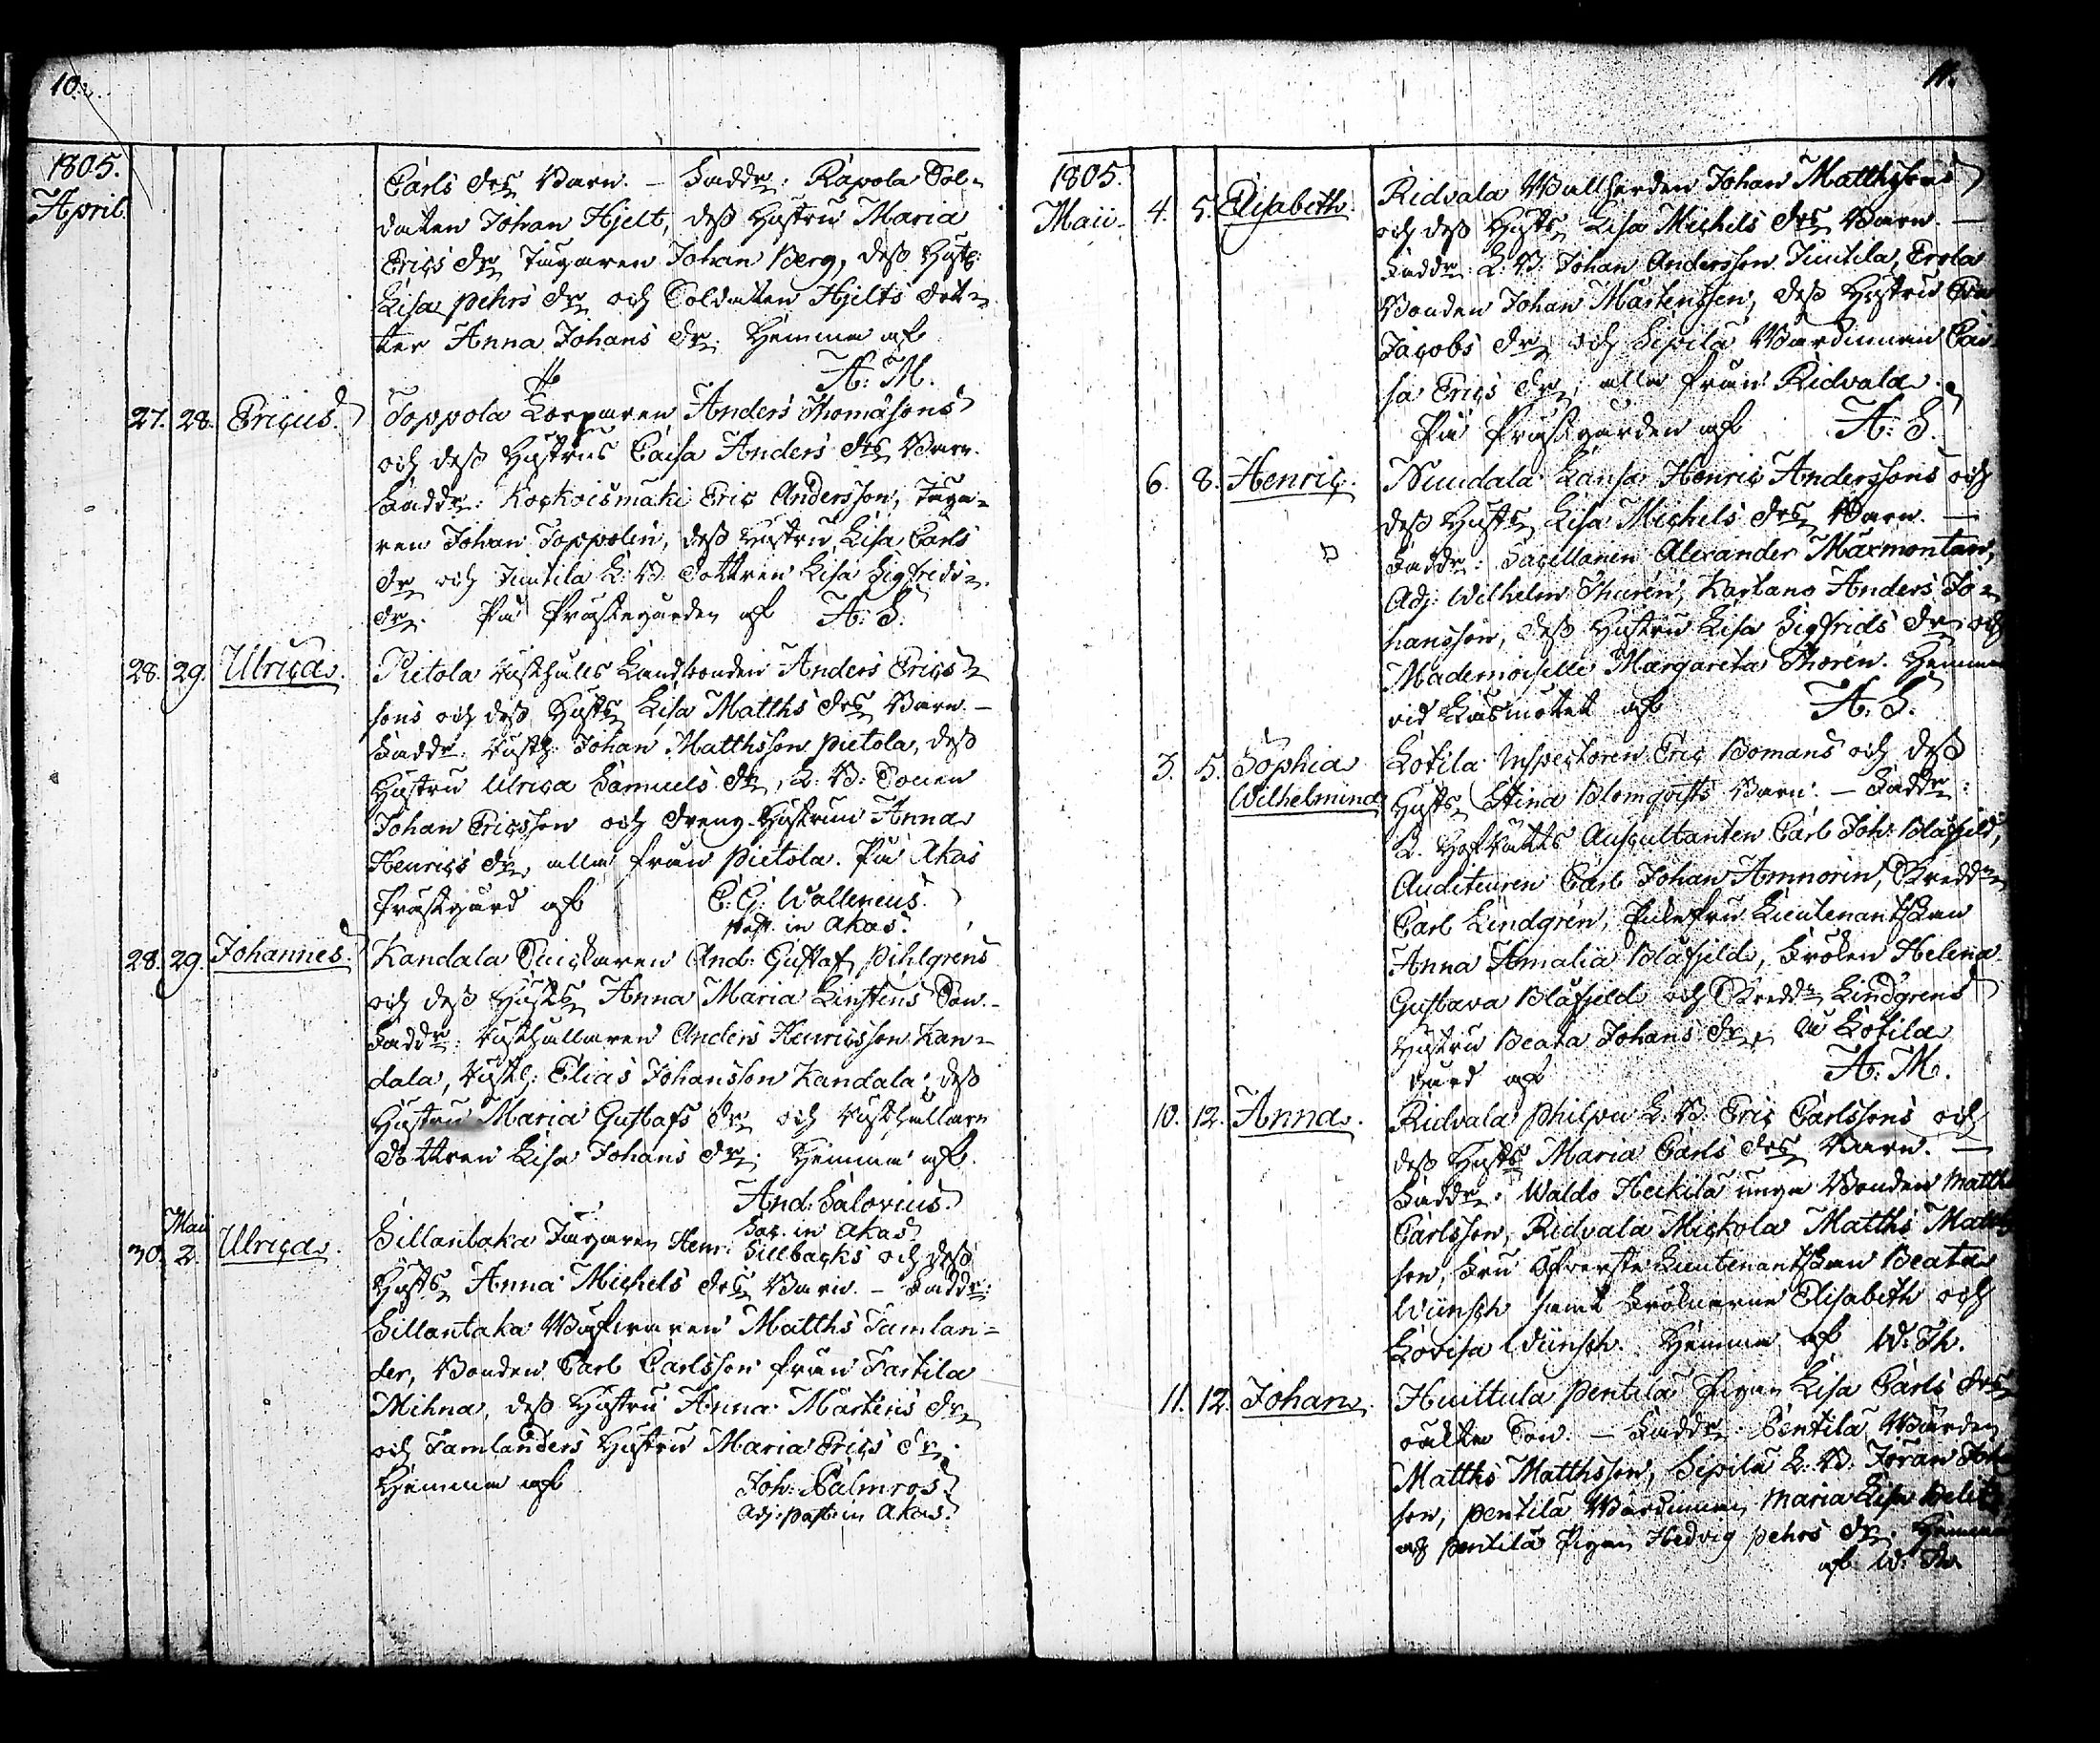 10.
1805.
April.
Carls drs Barn. – Faddr: Rapola Sol-
daten Johan Hjelt, dess Hustru Maria
Erics dr, Jägaren Johan Berg, dess Hustr:
Lisa Pehrs dr och Soldaten Hjelts dot-
ter Anna Johans dr. Hemma af
A: M.
27. 28. Ericus. Toppola Torparen Anders Thomasons
och dess Hustrus Caisa Anders drs Barn.
Faddr: Kockoismäki Eric Andersson, Jäga-
ren Johan Toppolin, dess Hustru Lisa Carls
dr och Juutila L: B. Dottren Lisa Sigfrids-
dr. På Prästegården af A: S.
28. 29. Ulrica. Pietola Rusthålls Landbonden Anders Erics-
sons och dess Hustrs Lisa Matths drs Barn. –
Faddr: Rusth: Johan Matthsson Pietola, dess
Hustru Ulrica Samuels dr, L: B: Sonen
Johan Ericsson och dreng Hustrun Anna
Henrics dr, alla från Pietola. På Akas
Prästgård af C: G: Wallenius.
past. in Akas.
28. 29. Johannes. Kandala Snickaren And: Gustaf Pihlgrens
och dess Hustrs Anna Maria Linstens Son. –
Faddr: Rusthållaren Anders Henricsson Kan-
dala, Rusth: Elias Johansson Kandala, dess
Hustru Maria Gustafs dr och Rusthållare
dottren Lisa Johans dr. Hemma af.
And: Salovius.
Sac. in Akas
Maii
30. 2. Ulrica. Sillantaka Jägaren Henr: Sillbacks och dess
Hustrs Anna Michels drs Barn. – Faddr:
Sillantaka Matths Tamlan-
der, Bonden Carl Carlsson från Tartila
Mihna, dess Hustru Anna Mårtens dr
och Tamlanders Hustru Maria Erics dr.
Hemma af Joh: Palmros.
Adj: past: in Akas.
11.
1805.
Maii. 4. 5. Elisabeth. Ridvala Wallherden Johan Matthssons
och dess Hustrs Lisa Michels drs Barn. –
Faddr: L: B. Johan Andersson Juutila, Erola
Bonden Johan Mårtensson, dess Hustru Eva
Jacobs dr och Sipilä Wärdinnan Cai-
sa Erics dr, alla från Ridvala.
På Prästgården af A: S.
6. 8. Henric. Nuudala Lansa Henric Anderssons och
dess Hustrs Lisa Michels drs Barn. –
Faddr: Sacellanen Alexander Marmontan,
Adj: Wilhelm Thurén, Kartano Anders Jo-
hansson, dess Hustru Lisa Sigfrids dr och
Mademoiselle Margareta Thorén. Hemma
vid Läsmötet af A. S.
3. 5. Sophia Lotila Inspectoren Eric Bomans och dess
Wilhelmina Hustrs Stina Blomqvists Barn. – Faddr:
L. HofRätts Auscultanten Carl Joh: Blåfjeld,
Auditeuren Carl Johan Amnorin, Skreddn
Carl Lindgrén, Lieutenantskan
Anna Amalia Blåfjeld, Fröken Helena
Gustava Blåfjeld och Skreddn Lindgrens
Hustru Beata Johans dr. å Lotila
Gård af A: M.
10. 12. Anna. Ridvala Philpu L: B. Eric Carlssons och
dess Hustrs Maria Carls drs Barn. –
Faddr: Waldo Heikilä unga Bonden Matths
Carlsson, Ridvala Mickola Matths Matths
son, Fru Öfverste Lieutenantskan Beata
Wünsch samt Fröknarne Elisabeth och
Lovisa Wünsch. Hemma af W: Th.
11. 12. Johan. Huittula Pentilä Pigan Lisa Carls drs
oäkta Son. – Faddr: Pentilä Wärden
Matths Matthsson, Sipilä L: B. Joran Joh
son, Pentilä Wärdinnan Maria Lisa
och Pentilä Pigan Hedvig Pehrs dr. Hemma
af W: Th.